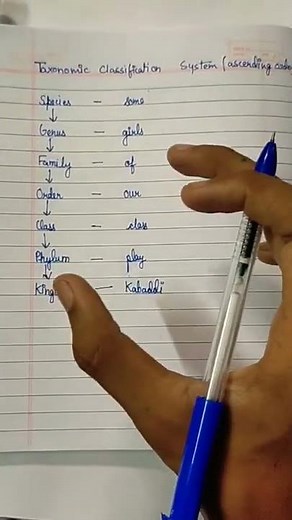 Taxonomic Classification System (ascending
Species — some
Genus — girls
Family — of
Order — our
Class — class
Phylum — play
King — Kabaddi